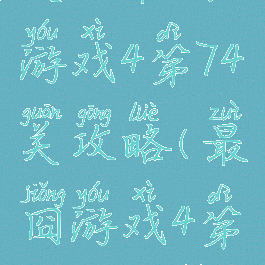 yóu xì dì
游戏4第74
guān gōng lüè zuì
关攻略(最
jiǒng yóu xì dì
囧游戏4第